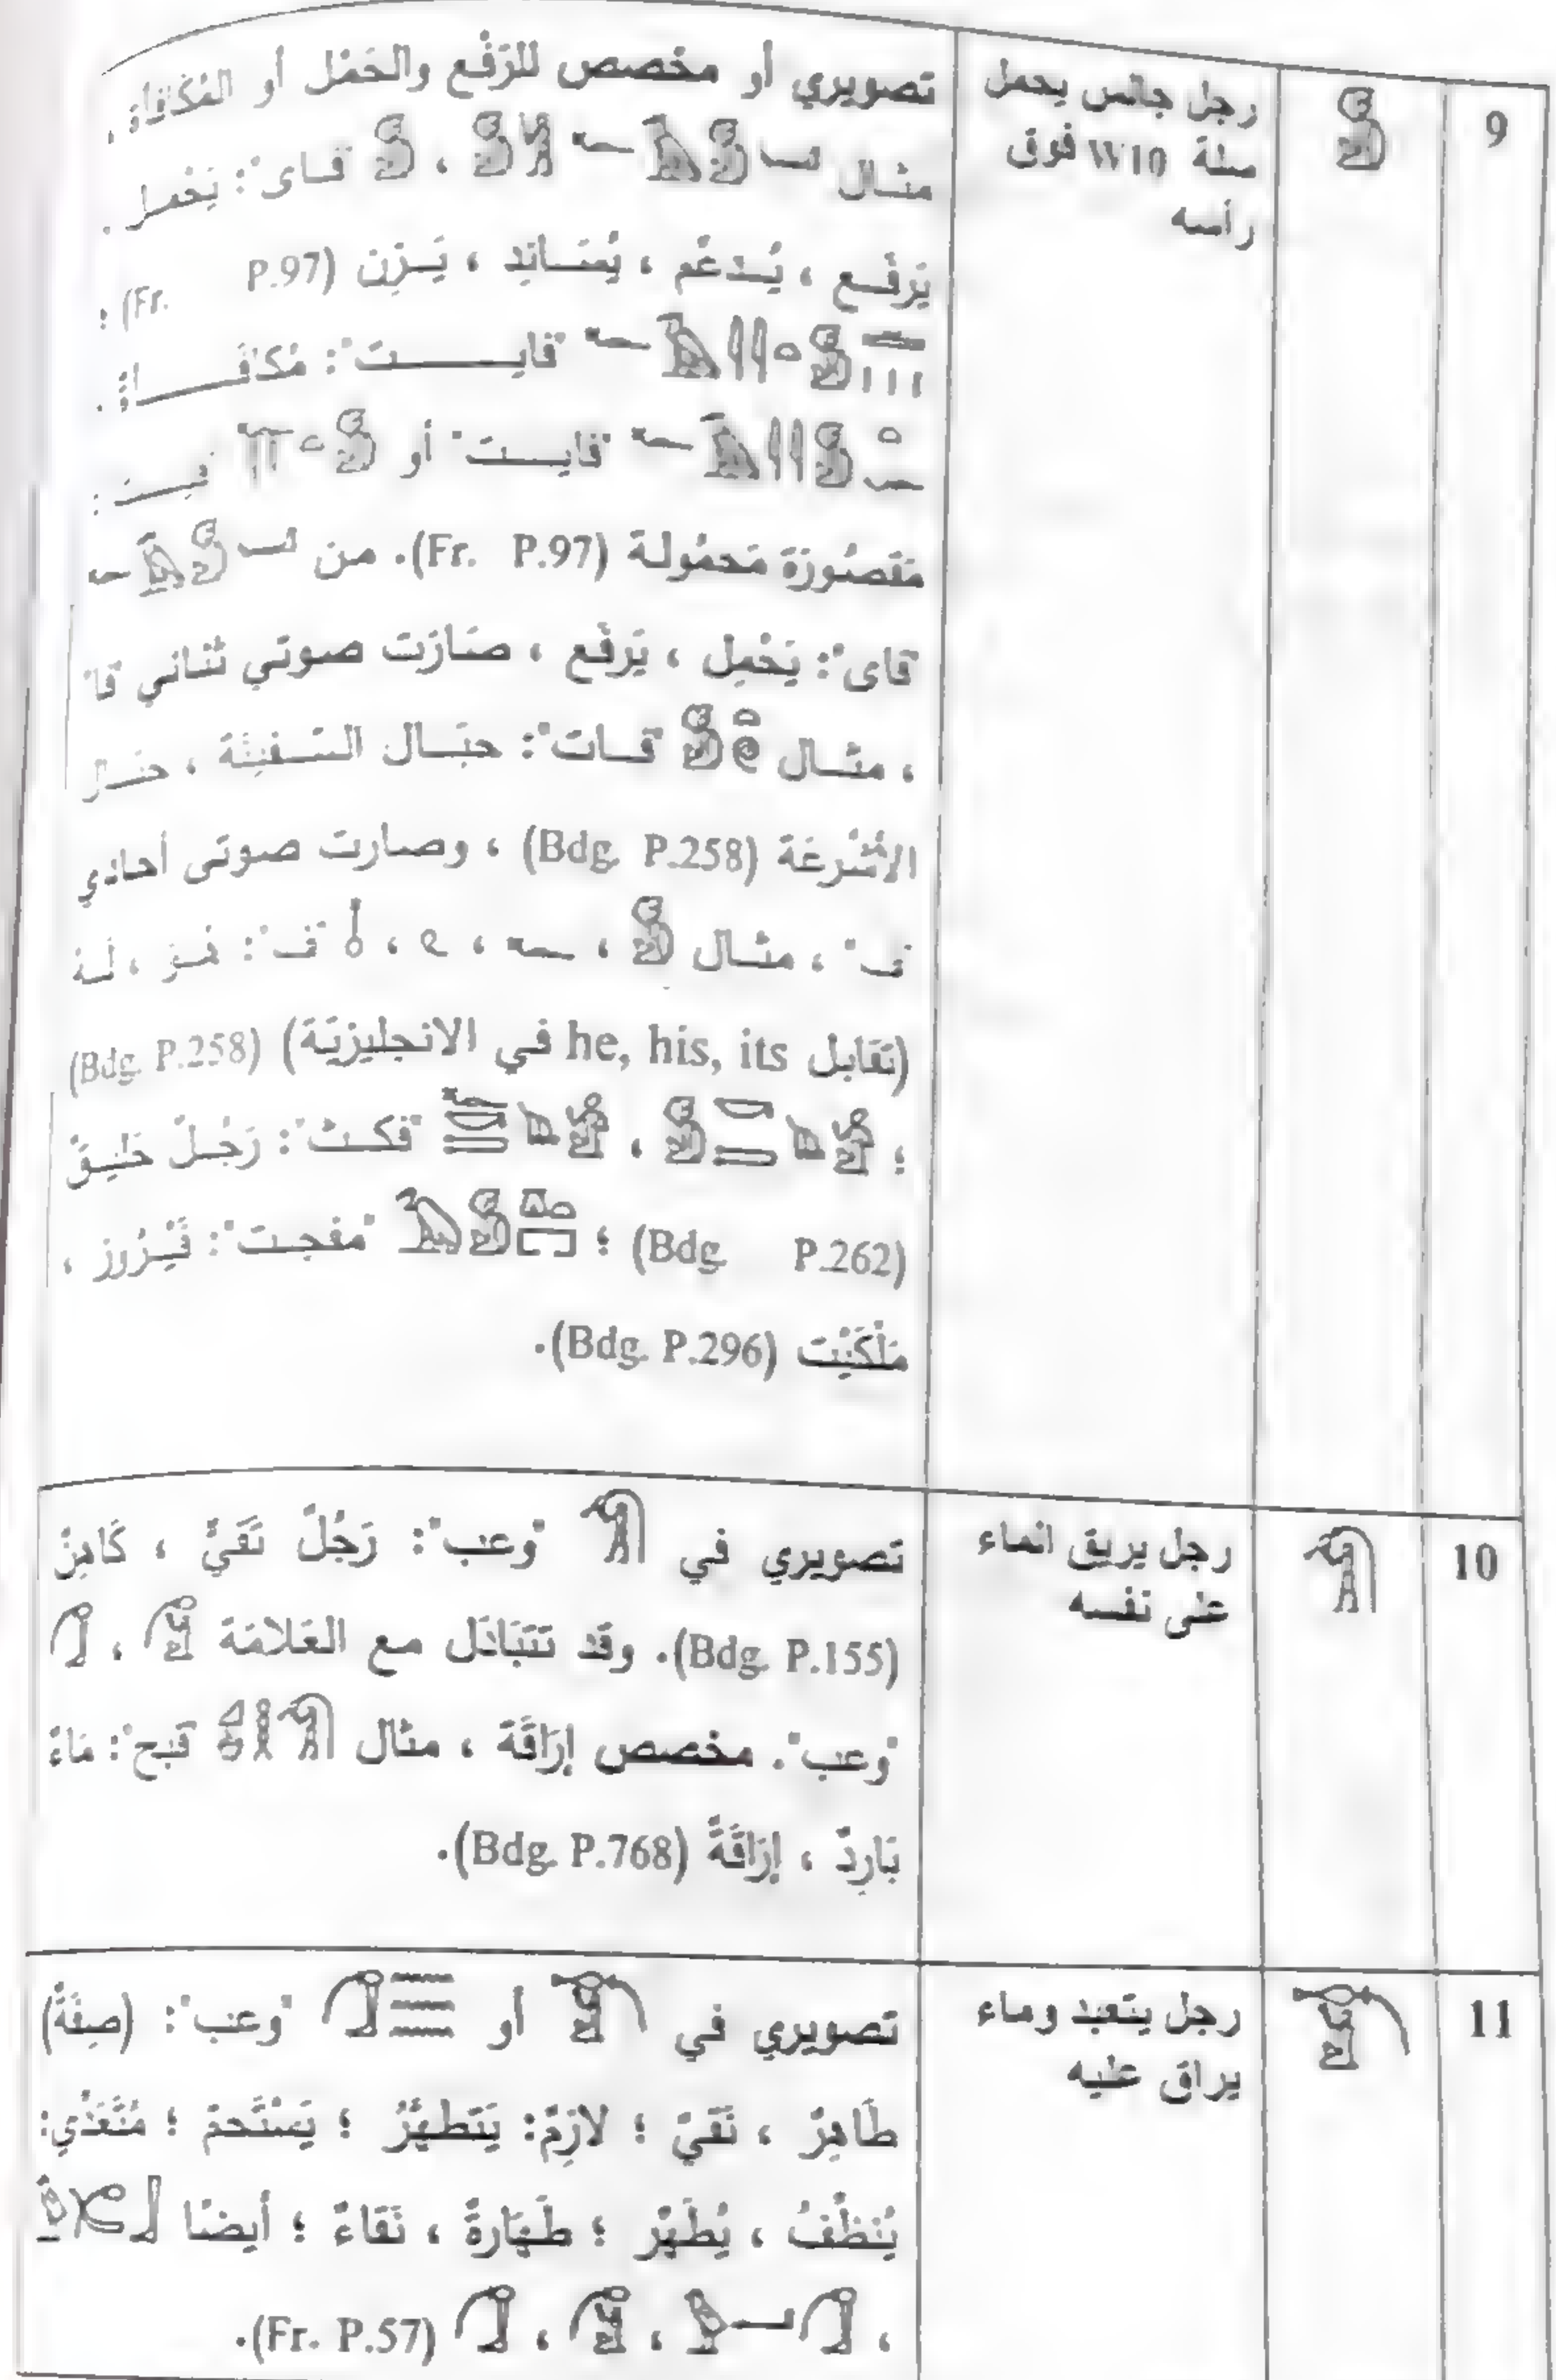 9
رجل جالس يحمل
سلة W10 فوق
رأسه
تصويري أو مخصص للرَفْع والحَمْل أو المُكافأة ،
مثال ، "فاى": يَحْمِل ،
يَرْفَع ، يُدَعِّم ، يُسَانِد ، يَزِن (Fr. P.97) ؛
"فايت": مُكافَأة ،
"فايت" أو "فيت":
مَقصُورَة مَحمُولة (Fr. P.97). من
"فاى": يَحْمِل ، يَرْفَع ، صَارَت صوتي ثنائي "فا"
، مثال "فات": حبَال السَفِينَة ، حبَال
الأشْرِعَة (Bdg. P.258) ، وصارت صوتى أحادي
"ف" ، مثال ، ، ، "ف": هُوَ ، لَهُ
(تقابل he, his, its في الانجليزيَة) (Bdg. P.258)
؛ ، "فكت": رَجُلٌ حَلِيقٌ
(Bdg. P.262) ؛ "مفجت": فَيْرُوز ،
مَلْكَيْت (Bdg. P.296).
10
رجل يريق الماء
على نفسه
تصويري في "وعب": رَجُلٌ نَقَيٌّ ، كَاهِنٌ
(Bdg. P.155). وقد تتَبَادَل مع العَلامَة ،
"وعب". مخصص إرَاقَة ، مثال "قبح": مَاءٌ
بَارِدٌ ، إرَاقَةٌ (Bdg. P.768).
11
رجل يتعبد وماء
يراق عليه
تصويري في أو "وعب": (صِفَةٌ)
طَاهِرٌ ، نَقَيٌ ؛ لازِمٌ: يَتَطهَّرُ ؛ يَسْتَحمُ ؛ مُتَعَدِّي:
يُنَظِّفُ ، يُطَهِّر ؛ طَهَارةٌ ، نَقَاءٌ ؛ أيضًا
، ، ، (Fr. P.57).